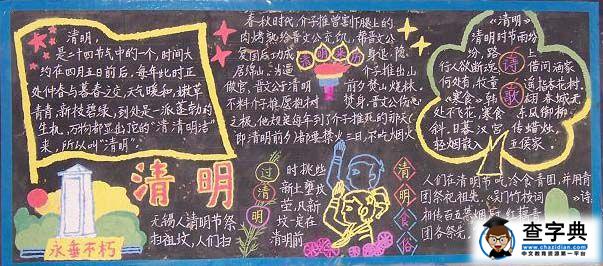 清明，
是二十四节气中的一个，时间大
约在四月五日前后，每年比时正
处仲春与暮春之交，天气暖和，嫩草
青青，新枝碧绿，到处是一派蓬勃的
生机，万物都显出它的“清清明洁”
来，所以叫“清明”。
清明
永垂不朽
无锡人清明节祭
扫祖坟，人们扫
春秋时代，介子推曾割下腿上的
肉烤熟给晋文公充饥，帮晋文公
爱国后功成
身退，隐
居绵山，为逼
介子推出山
做官，晋文公于清明
前夕焚山烧林，
不料介子推愿抱树
焚身，晋文公伤心
之极，他规定每年到了介子推死的那天
(即清明前夕)都要禁火三日，不吃烟火
清明来历
过清明
时挑些
新土壅坟
茔，凡新
坟一定在
清明前
清明食俗
《清明》
清明时节雨纷
纷，路上
行人欲断魂
借问酒家
何处有，牧童
遥指杏花村。
《寒食》韩
翃 春城无
处不飞花，寒食
东风御柳
斜。日暮汉宫
传蜡烛，
轻烟散入
五侯家。
诗歌
人们在清明节吃冷食青团，并用青
团祭祀祖先。
团祭祖先。
查字典
www.chazidian.com
中文教育资源第一平台